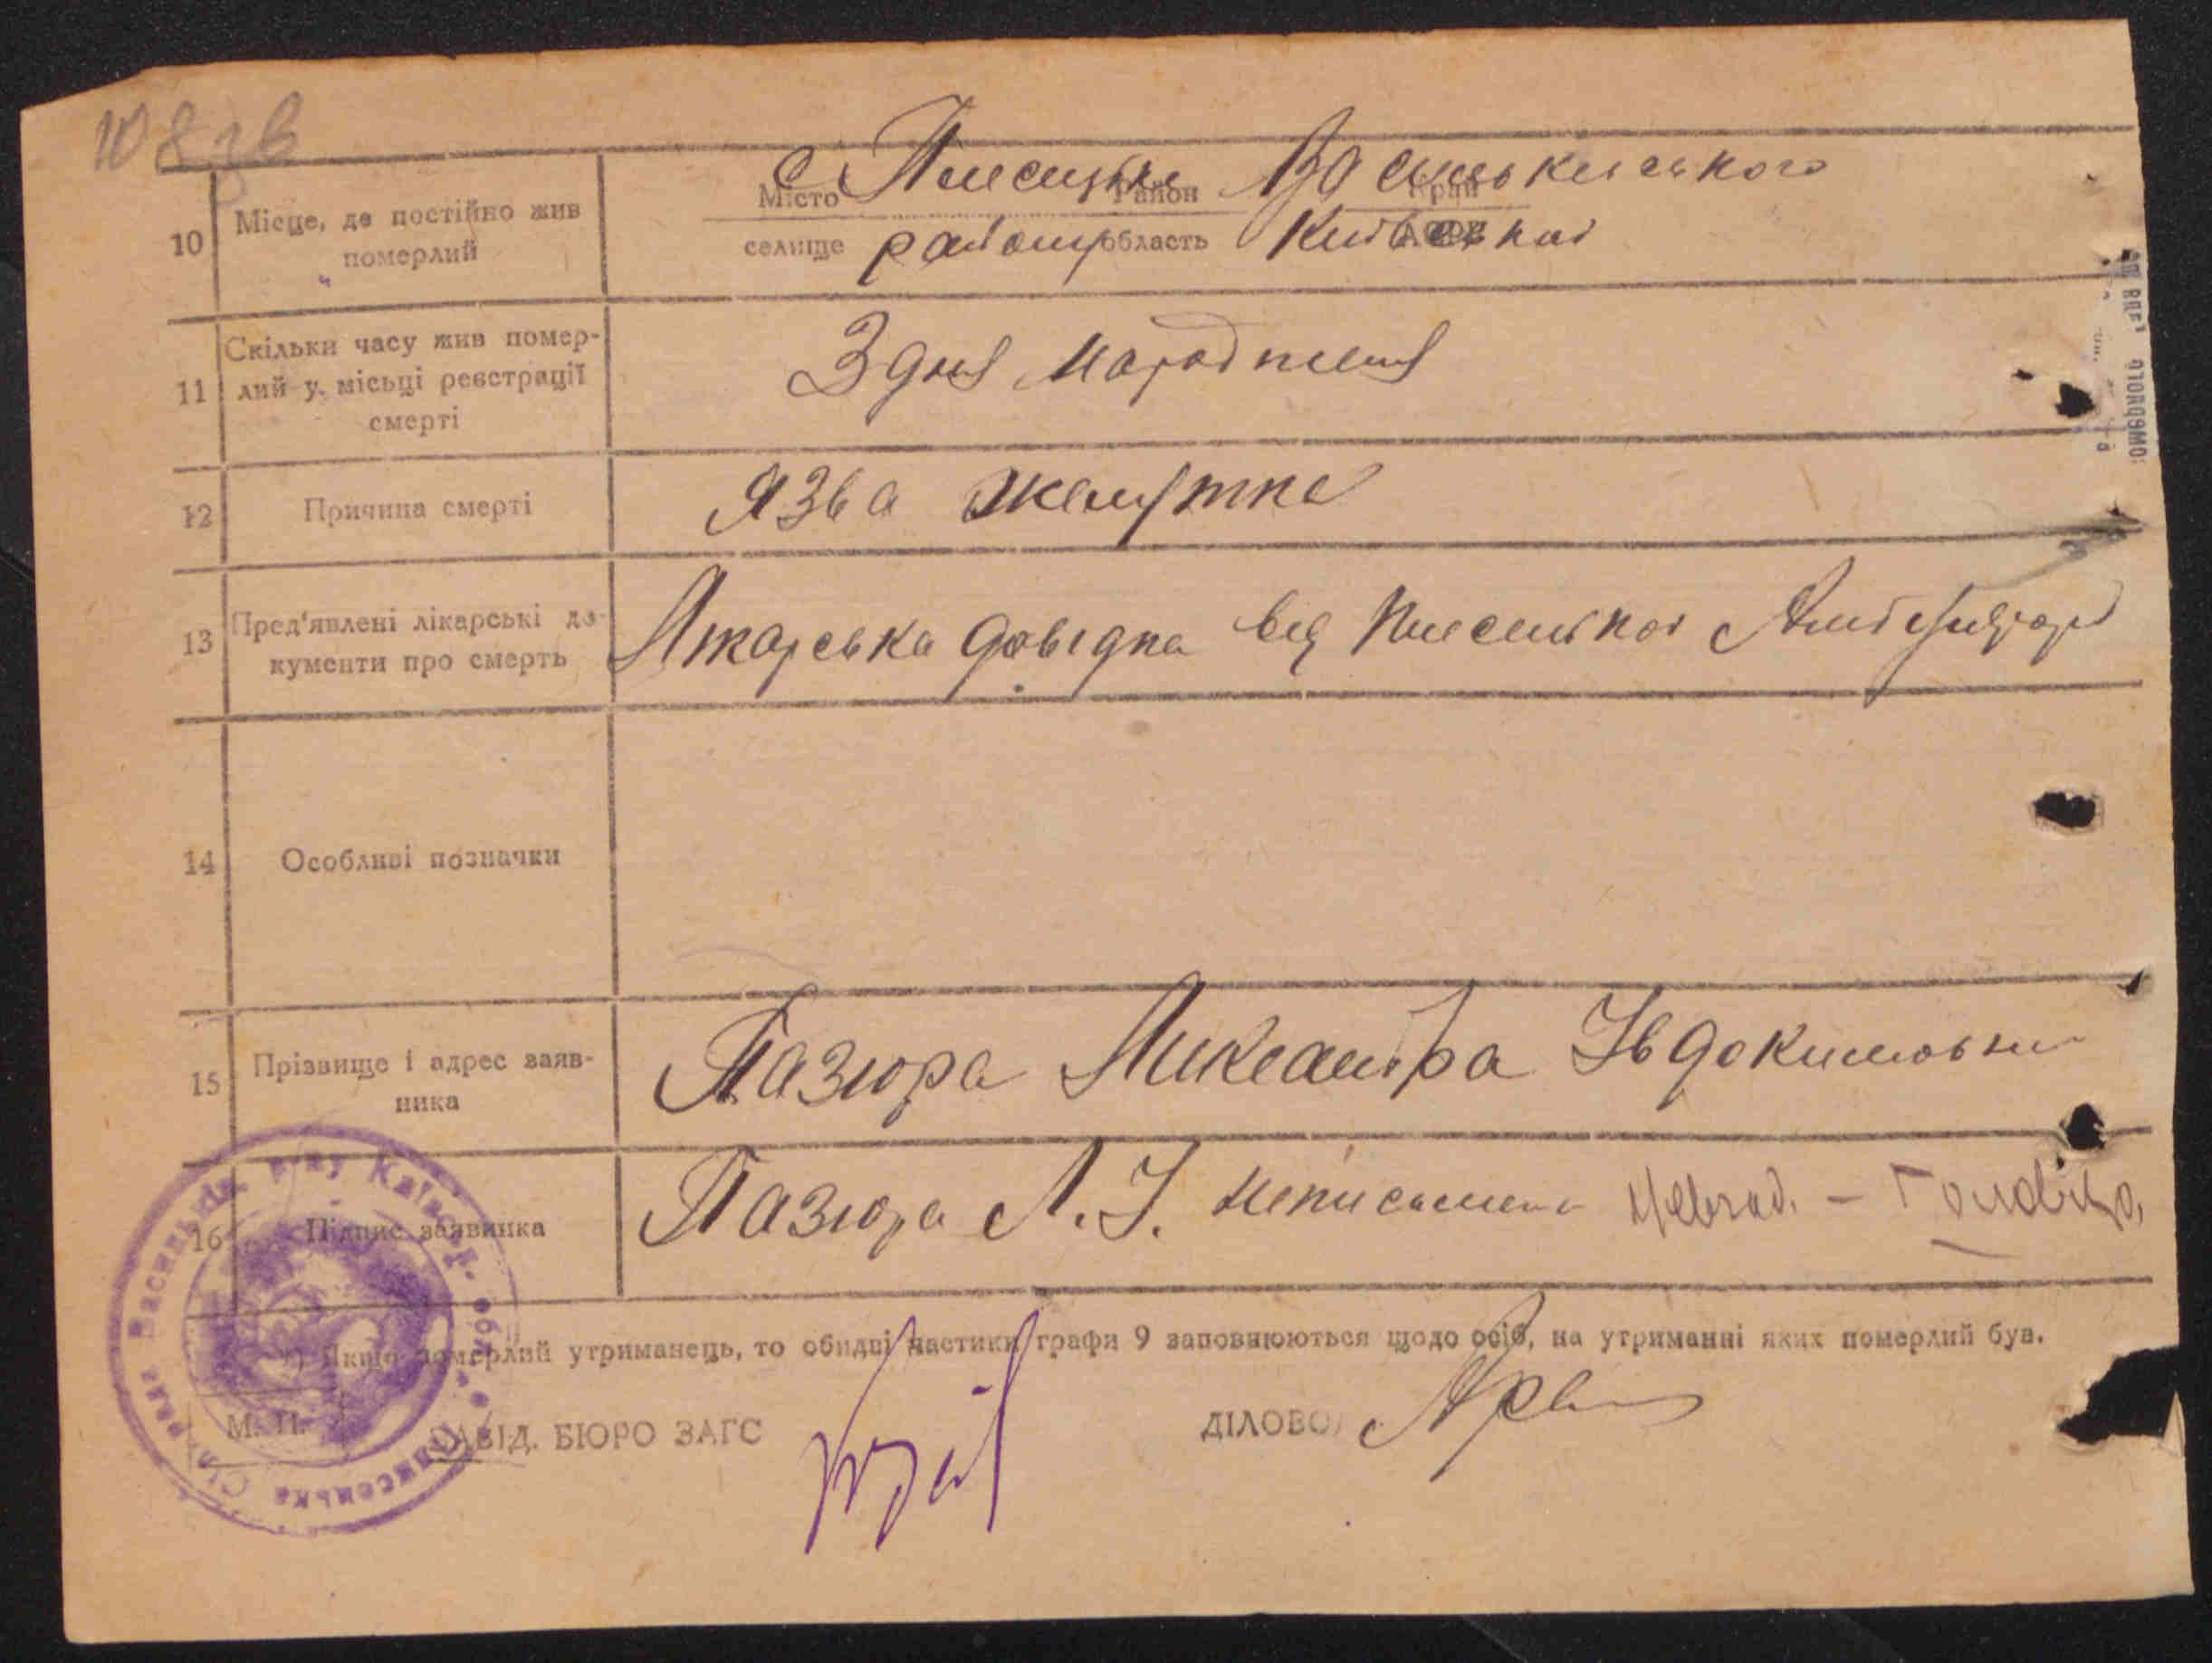 108 зв
10 Місце, де постійно жив померлий
Місто Район Край
с Плесецьке Васильківського
селище область АСРР
району Київської
11 Скільки часу жив помер-
лий у місьці реєстрації
смерті
З дня народження
12 Причина смерті
Язва желутка
13 Пред'явлені лікарські до-
кументи про смерть
Лікарська довідка від Плесецької Амбулаторії
14 Особливі позначки
15 Прізвище і адрес заяв-
ника
Пазюра Ликеандра
16 Підпис заявника
Пазюра Л. неписьмен
*) Якщо померлий утриманець, то обидві частики графи 9 заповнюються щодо осіб, на утриманні яких померлий був.
М. П.
ЗАВІД. БЮРО ЗАГС
ДІЛОВОД